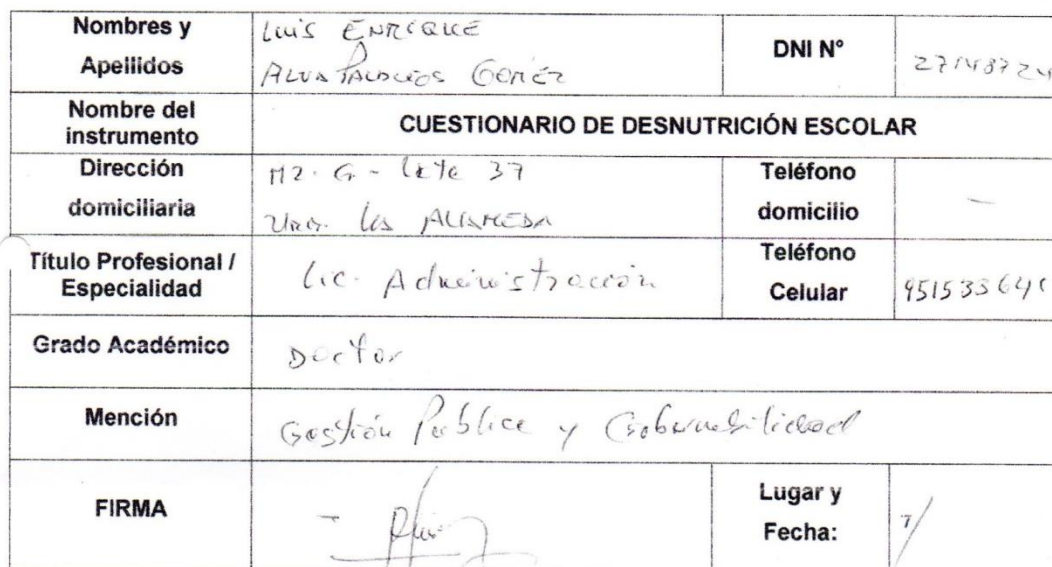 Nombres y
Apellidos
Luis ENRIQUE
ALVA PALACIOS GOMEZ
DNI N°
27148724
Nombre del
instrumento
CUESTIONARIO DE DESNUTRICIÓN ESCOLAR
Dirección
domiciliaria
Mz. G - Lote 37
Urb. La ALAMEDA
Teléfono
domicilio
-
Título Profesional /
Especialidad
Lic. Administración
Teléfono
Celular
95153364
Grado Académico
Doctor
Mención
Gestión Publica y Gobernabilidad
FIRMA
Lugar y
Fecha:
7/